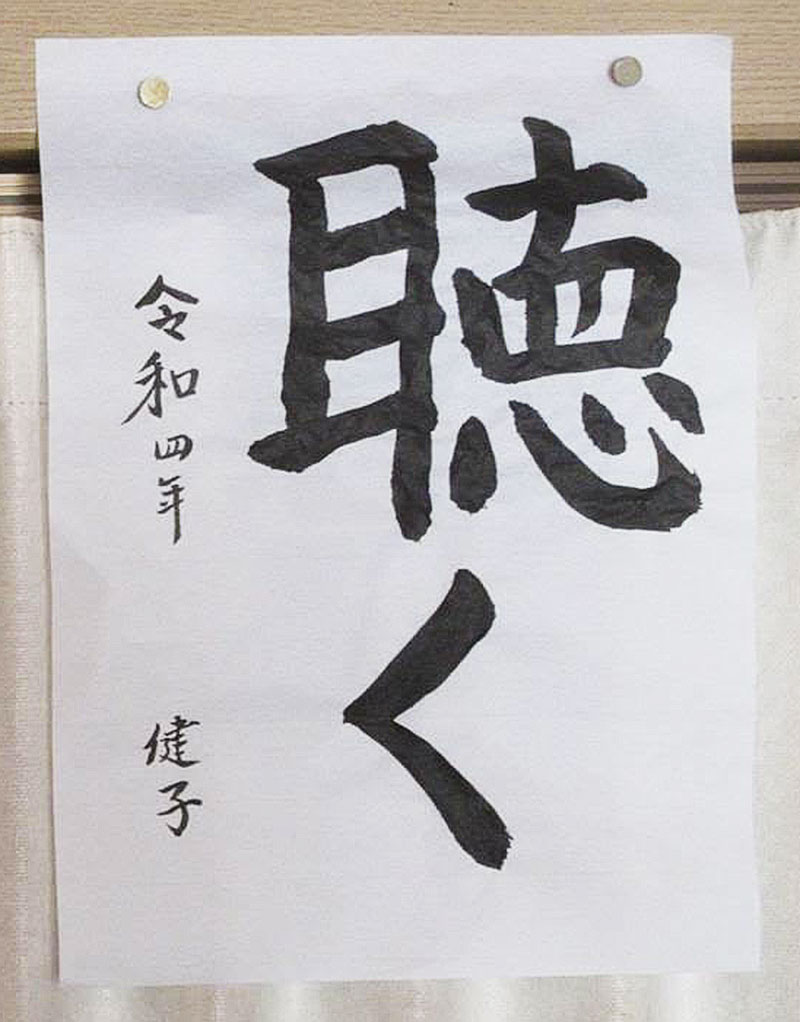 聴く
令和四年
健子